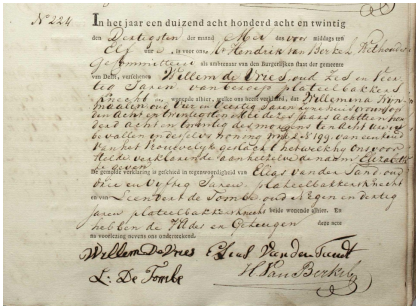 No 224
In het jaar een duizend acht honderd acht en twintig
den Dertigsten der maand Mei des voor middags ten
Elf ure, is voor ons, Hendrik van Berkel Wethouder
Gecommitteerd als ambtenaar van den Burgerlijken staat der gemeente
van Delft, verschenen Willem de Vries, oud Zes en Veer
tig Jaren van beroep plateelbakkers
Knecht wonende alhier, welke ons heeft verklaard, dat Willemina
oud Vier en Veertig Jaren Zijne Huisvrouw
op den Acht en twintigsten dezes Jaars achttien hon
derd Acht en twintig des morgens ten acht ure is
bevallen in deszelfs woning Wijk 199. van een kind
van het Vrouwelijk geslacht hetwelk hij ons voor
stelde verklarende aan hetzelve de naam Elizabeth
te geven
De gemelde verklaring is geschied in tegenwoordigheid van Elias van der Sand oud
Drie en Vijftig Jaren, plateelbakkersknecht
en van Leendert de Tombe oud Negen en dertig
Jaren plateelbakkersknecht beide wonende alhier. En
hebben de Vader en Getuigen deze acte
na voorlezing nevens ons onderteekend.
Willem De Vries Elias Van der Sandt
L: De Tombe H. Van Berkel